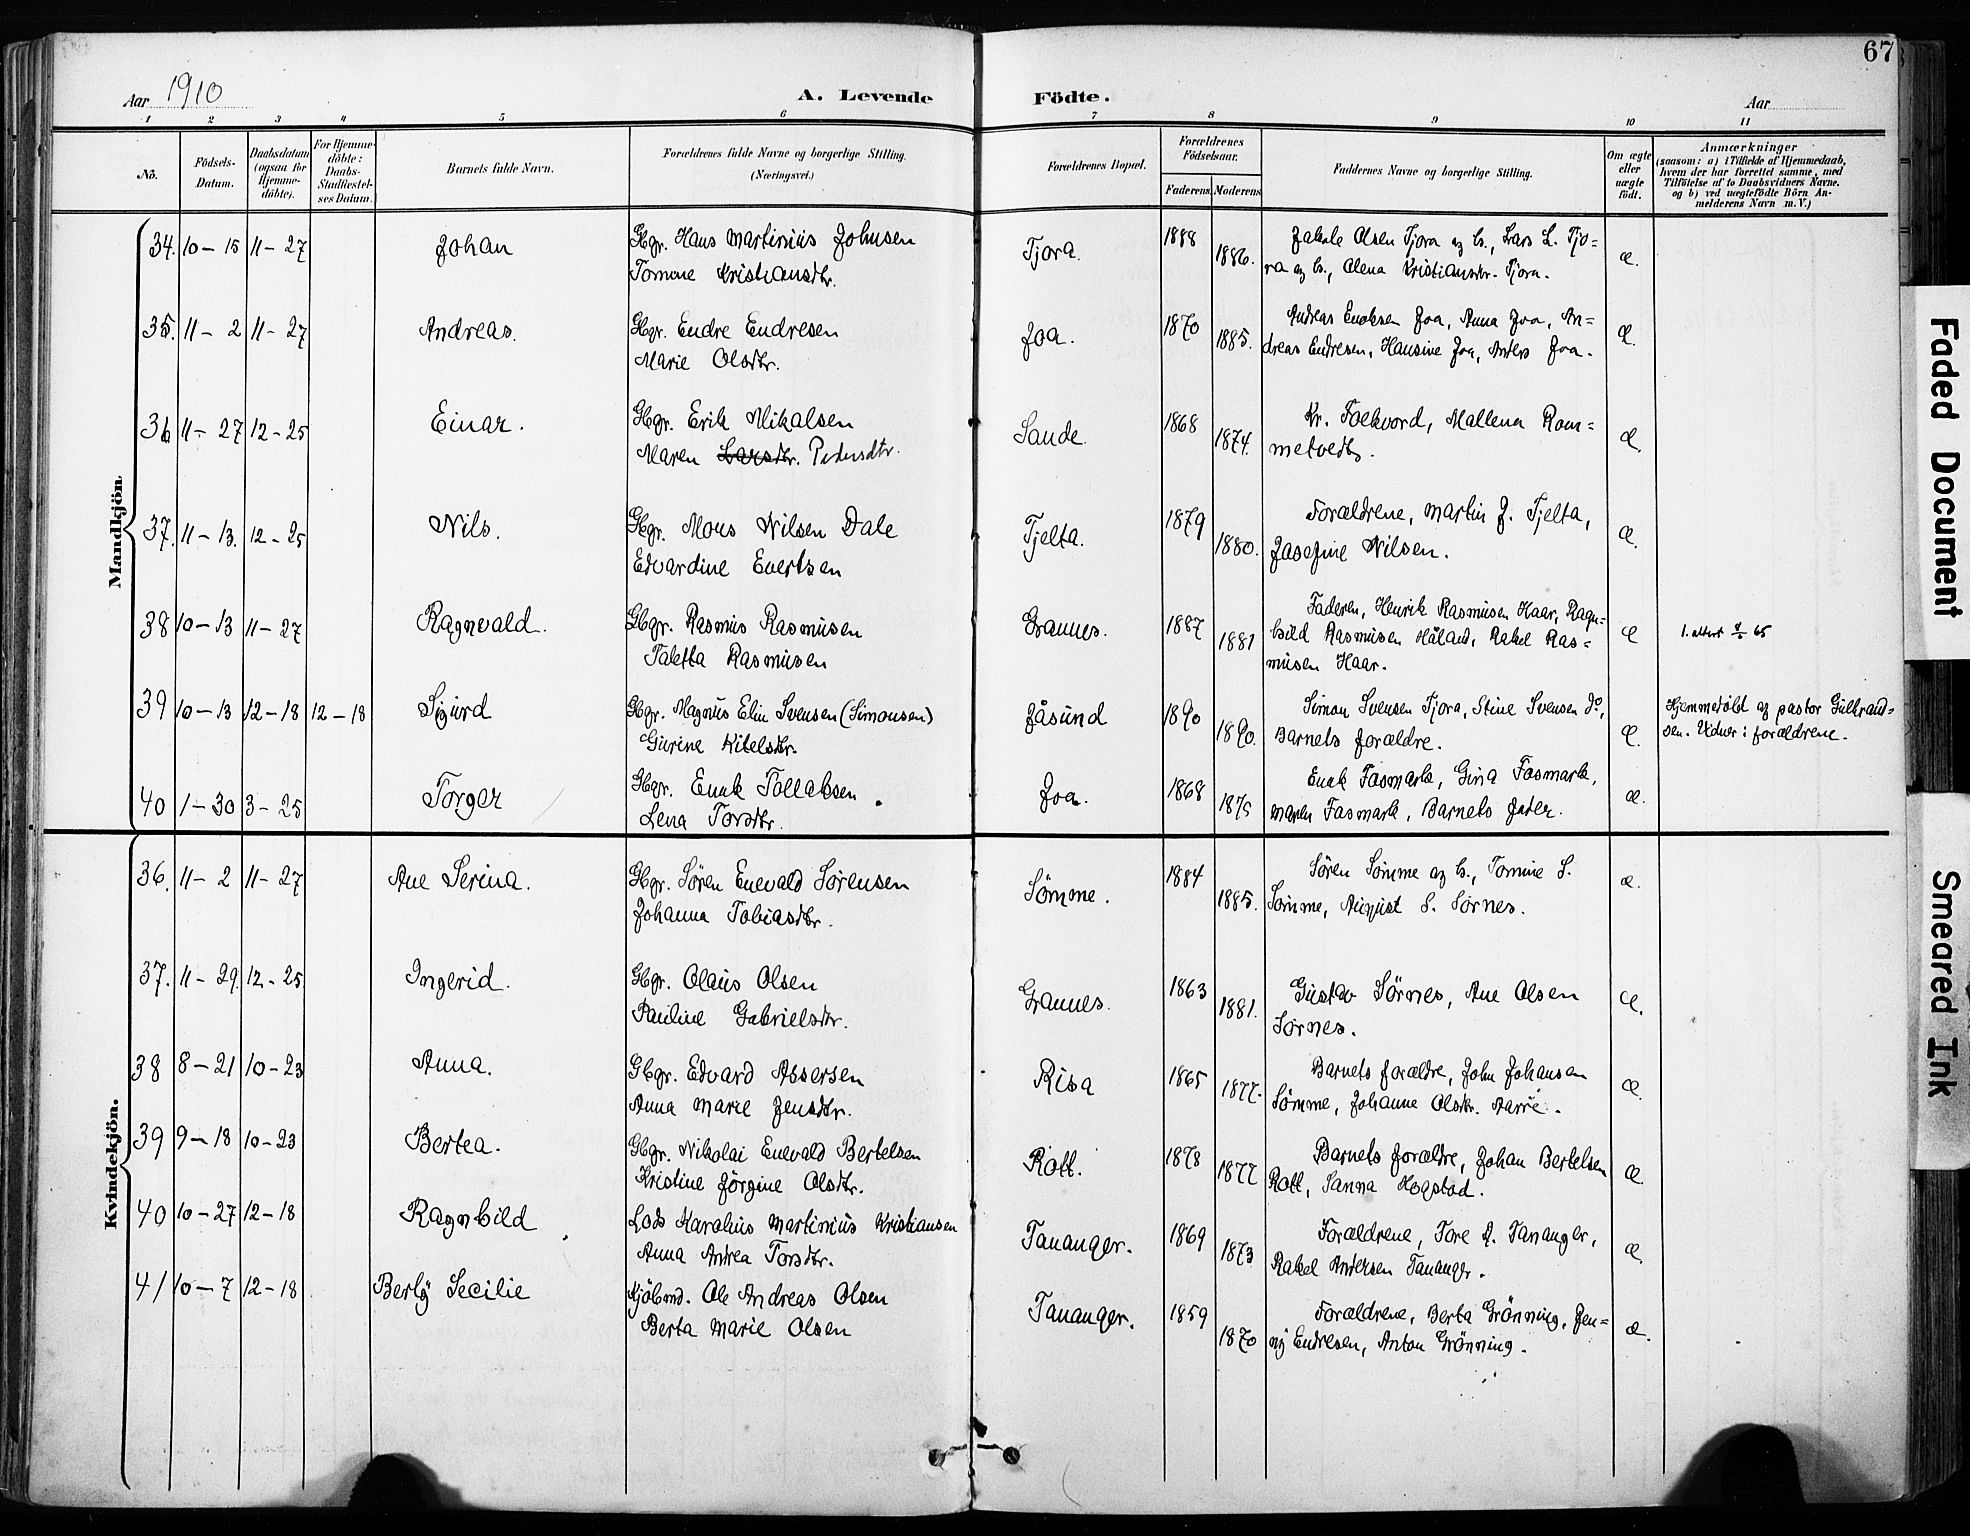 67
Aar 1910
A. Levende
Födte.
Aar
1 2 3 4 5 6 7 8 9 10 11
No.
Födsels-
Datum.
Daabsdatum
(ogsaa for
Hjemme-
döbte).
For Hjemme-
döbte:
Daabs-
Stadfæstel-
ses Datum.
Barnets fulde Navn.
Forældrenes fulde Navne og borgerlige Stilling.
(Næringsvei.)
Forældrenes Bopæl.
Forældrenes
Födselsaar.
Faderens. Moderens.
Faddernes Navne og borgerlige Stilling.
Om ægte
eller
uægte
födt.
Anmærkninger
(saasom: a) i Tilfælde af Hjemmedaab,
hvem der har forrettet samme, med
Tilföielse af to Daabsvidners Navne.
og b) ved uægtefödte Börn An-
melderens Navn m. V.)
Mandkjön.
34. 10 - 15 11 - 27 Johan
Gbgr. Hans Martinius Johnsen
Tomine Kristiansdtr.
Tjora. 1888 1886.
Jakob Olsen Tjora og h., Lars L. Tjo=
ra og h., Olena Kristiansdtr. Tjora.
æ.
35. 11 - 2 11 - 27 Andreas.
Gbgr. Endre Endresen
Marie Olsdtr.
Joa. 1870 1885.
Andreas Enoksen Joa, Anna Joa, An=
dreas Endresen, Hansine Joa, Anders Joa.
æ.
36 11 - 27 12 - 25 Einar.
Gbgr. Erik Mikalsen
Maren Larsdtr. Pedersdtr.
Sande. 1868 1874.
Kr. Foekvord, Mallena Rom=
metvedt.
æ.
37. 11 - 13. 12 - 25 Nils.
Gbgr. Mons Nilsen Dale
Edvardine Evertsen
Tjelta. 1879 1880.
Forældrene, Martin J. Tjelta,
Josefine Nilsen.
æ.
38 10 - 13 11 - 27 Ragnvald.
Gbgr. Rasmus Rasmusen
Taletta Rasmusen
Grannes. 1887 1881
Faderen, Henrik Rasmusen Haar, Ragn=
hild Rasmusen Håland, Rakel Ras=
musen Haar.
æ
39 10 - 13 12 - 18 12 - 18 Sigurd
Gbgr. Magnus Elin Svensen (Simonsen)
Gurine Kitelsdtr.
Jåsund 1890 1890.
Simon Svensen Tjora, Stine Svensen do,
Barnets forældre.
æ.
Hjemmedöbt af pastor Gulbrand=
sen. Vidner: forældrene.
40 1 - 30 3 - 25 Torger
Gbgr. Enok Tollaksen
Lena Torsdtr.
Joa. 1868 1875
Enok Fasmark, Gina Fosmark,
Maren Fasmark, Barnets fader.
æ.
Kvindekjön.
36. 11 - 2 11 - 27 Ane Serina.
Gbgr. Sören Enevald Sörensen
Johanna Tobiasdtr.
Sömme. 1884 1885.
Sören Sömme og h., Tomine S.
Sömme, August S. Sörnes.
æ.
37. 11 - 29. 12 - 25 Ingerid.
Gbgr. Olaus Olsen
Pauline Gabrielsdtr.
Grannes. 1863 1881.
Gustav Sörnes, Ane Olsen
Sörnes.
æ.
38 8 - 21 10 - 23 Anna.
Gbgr. Edvard Assersen
Anna Marie Jensdtr.
Risa 1865 1877.
Barnets forældre, John Johansen
Sömme, Johanne Olsdtr. Aarre.
æ.
39 9 - 18 10 - 23 Bertea.
Gbgr. Nikolai Enevald Bertelsen
Kristine Jörgine Olsdtr.
Rott. 1878 1877
Barnets forældre, Johan Bertelsen
Rott, Sanna Hogstad.
æ.
40 10 - 27 12 - 18 Ragnhild
Lods Karolius Martinius Kristiansen
Anna Andrea Torsdtr.
Tananger. 1869 1873
Forældrene, Tore A. Tananger,
Rakel Andersen Tananger.
æ.
41 10 - 7 12 - 18 Berly Secilie
Kjöbmd. Ole Andreas Olsen
Berta Marie Olsen
Tananger. 1859 1870
Forældrene, Berta Grönning, Jen=
ny Endresen, Anton Grönning.
æ.
Faded Document
Smeared Ink